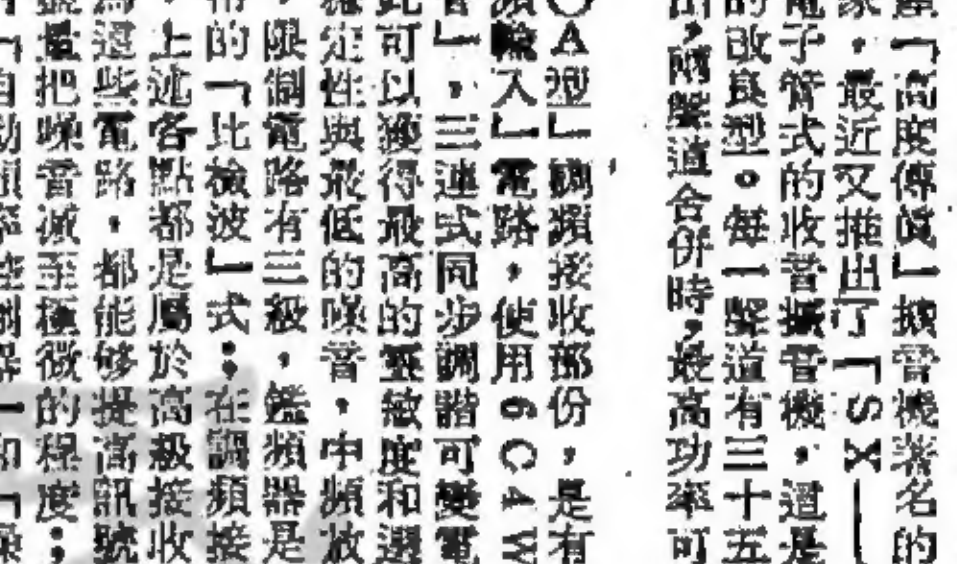 「高度傳眞」擴音機著名的
家，最近又推出了「SX—
電子管式的收音擴音機，這是
的改良型。每一聲道有三十五
，兩聲道合併時，最高功率可
A型」調頻接收部份，是有
頻輸入」電路，使用6C4W
」，三連式同步調諧可變電
此可以獲得最高的靈敏度和選
定性與最低的噪音，中頻放
限制電路有三級，鑑頻器是
的「比檢波」式；在調頻接
上述各點都是屬於高級接收
這些電路，都能够提高訊號
把噪音減至極微的程度；